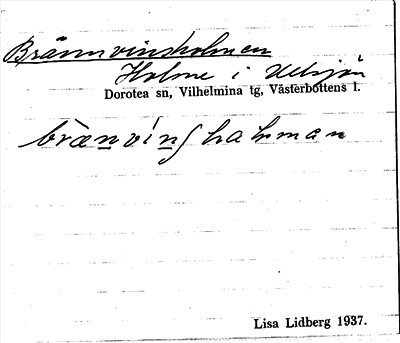 Brännvinsholmen
Holme i
Dorotea sn, Vilhelmina tg, Västerbottens l.
Lisa Lidberg 1937.